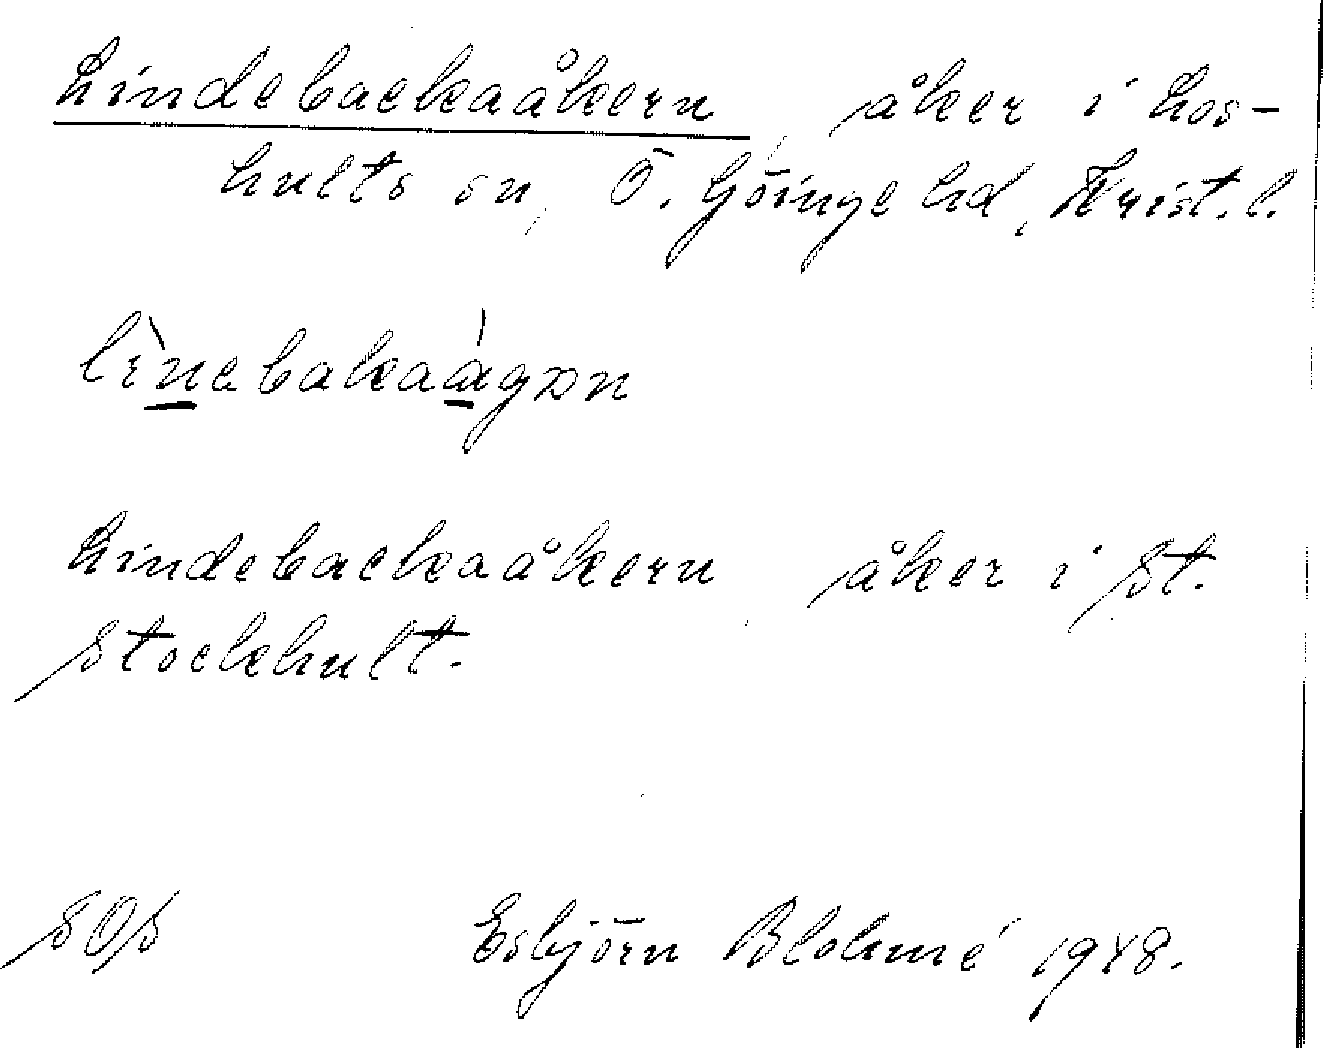 Lindebackaåkern, åker i Los-
hults sn, Ö. Göinge hd, Krist. l.
lìnebakaàgɒn
Lindebackaåkern, åker i St.
Stockhult.
SOS Esbjörn Blohmé 1948.